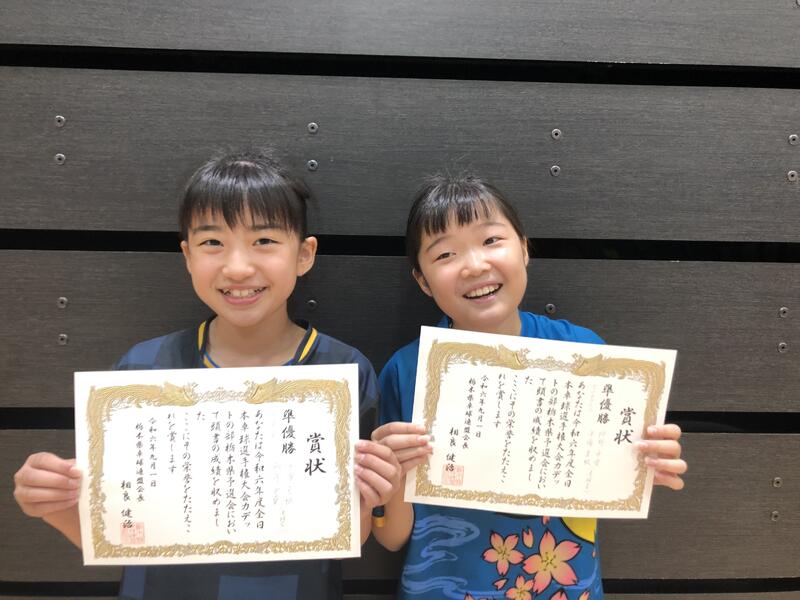 賞状
準優勝
あなたは令和六年度全日
本卓球選手権大会カデッ
トの部栃木県予選会におい
て頭書の成績を収めまし
た
ここにその栄誉をたたえこ
れを賞します
令和六年九月一日
栃木県卓球連盟会長
相良 健治
賞状
準優勝
あなたは令和六年度全日
本卓球選手権大会カデッ
トの部栃木県予選会におい
て頭書の成績を収めまし
た
ここにその栄誉をたたえこ
れを賞します
令和六年九月一日
栃木県卓球連盟会長
相良 健治